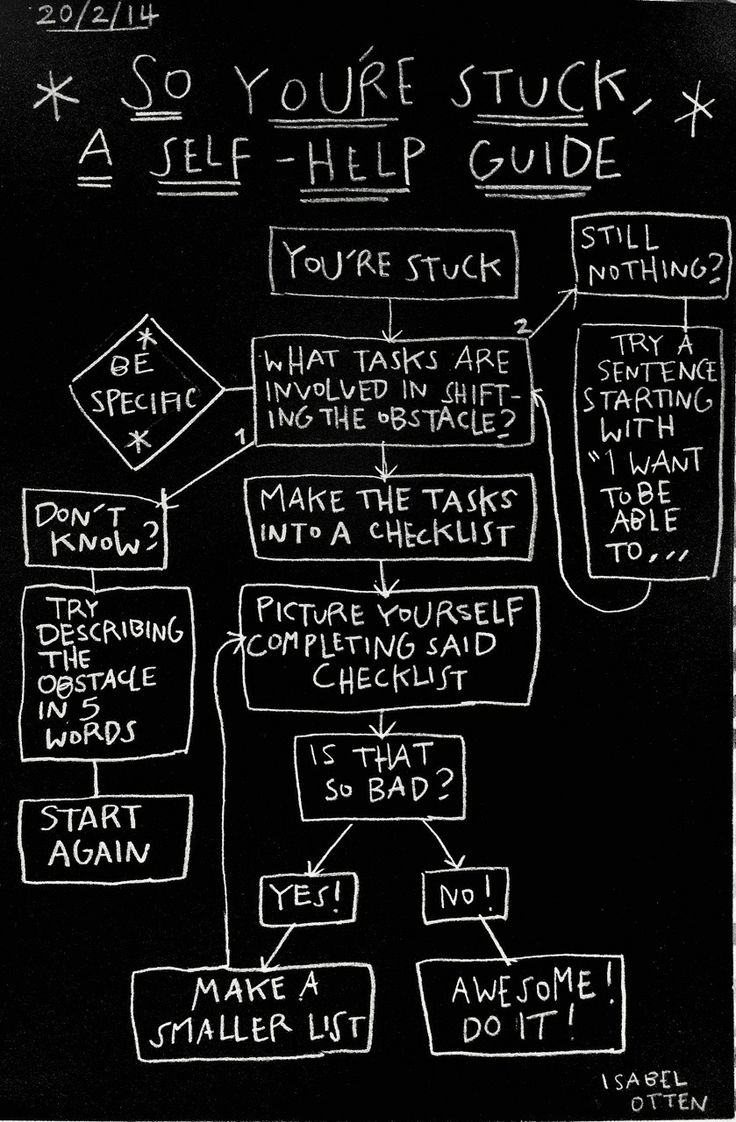 20/2/14
* SO YOU'RE STUCK, *
A SELF-HELP GUIDE
YOU'RE STUCK
STILL
NOTHING?
2
* BE
SPECIFIC
*
WHAT TASKS ARE
INVOLVED IN SHIFT-
ING THE OBSTACLE?
1
TRY A
SENTENCE
STARTING
WITH
"I WANT
TO BE
ABLE
TO...
DON'T
KNOW?
MAKE THE TASKS
INTO A CHECKLIST
TRY
DESCRIBING
THE
OBSTACLE
IN 5
WORDS
PICTURE YOURSELF
COMPLETING SAID
CHECKLIST
START
AGAIN
IS THAT
SO BAD?
YES!
NO!
MAKE A
SMALLER LIST
AWESOME!
DO IT!
ISABEL
OTTEN